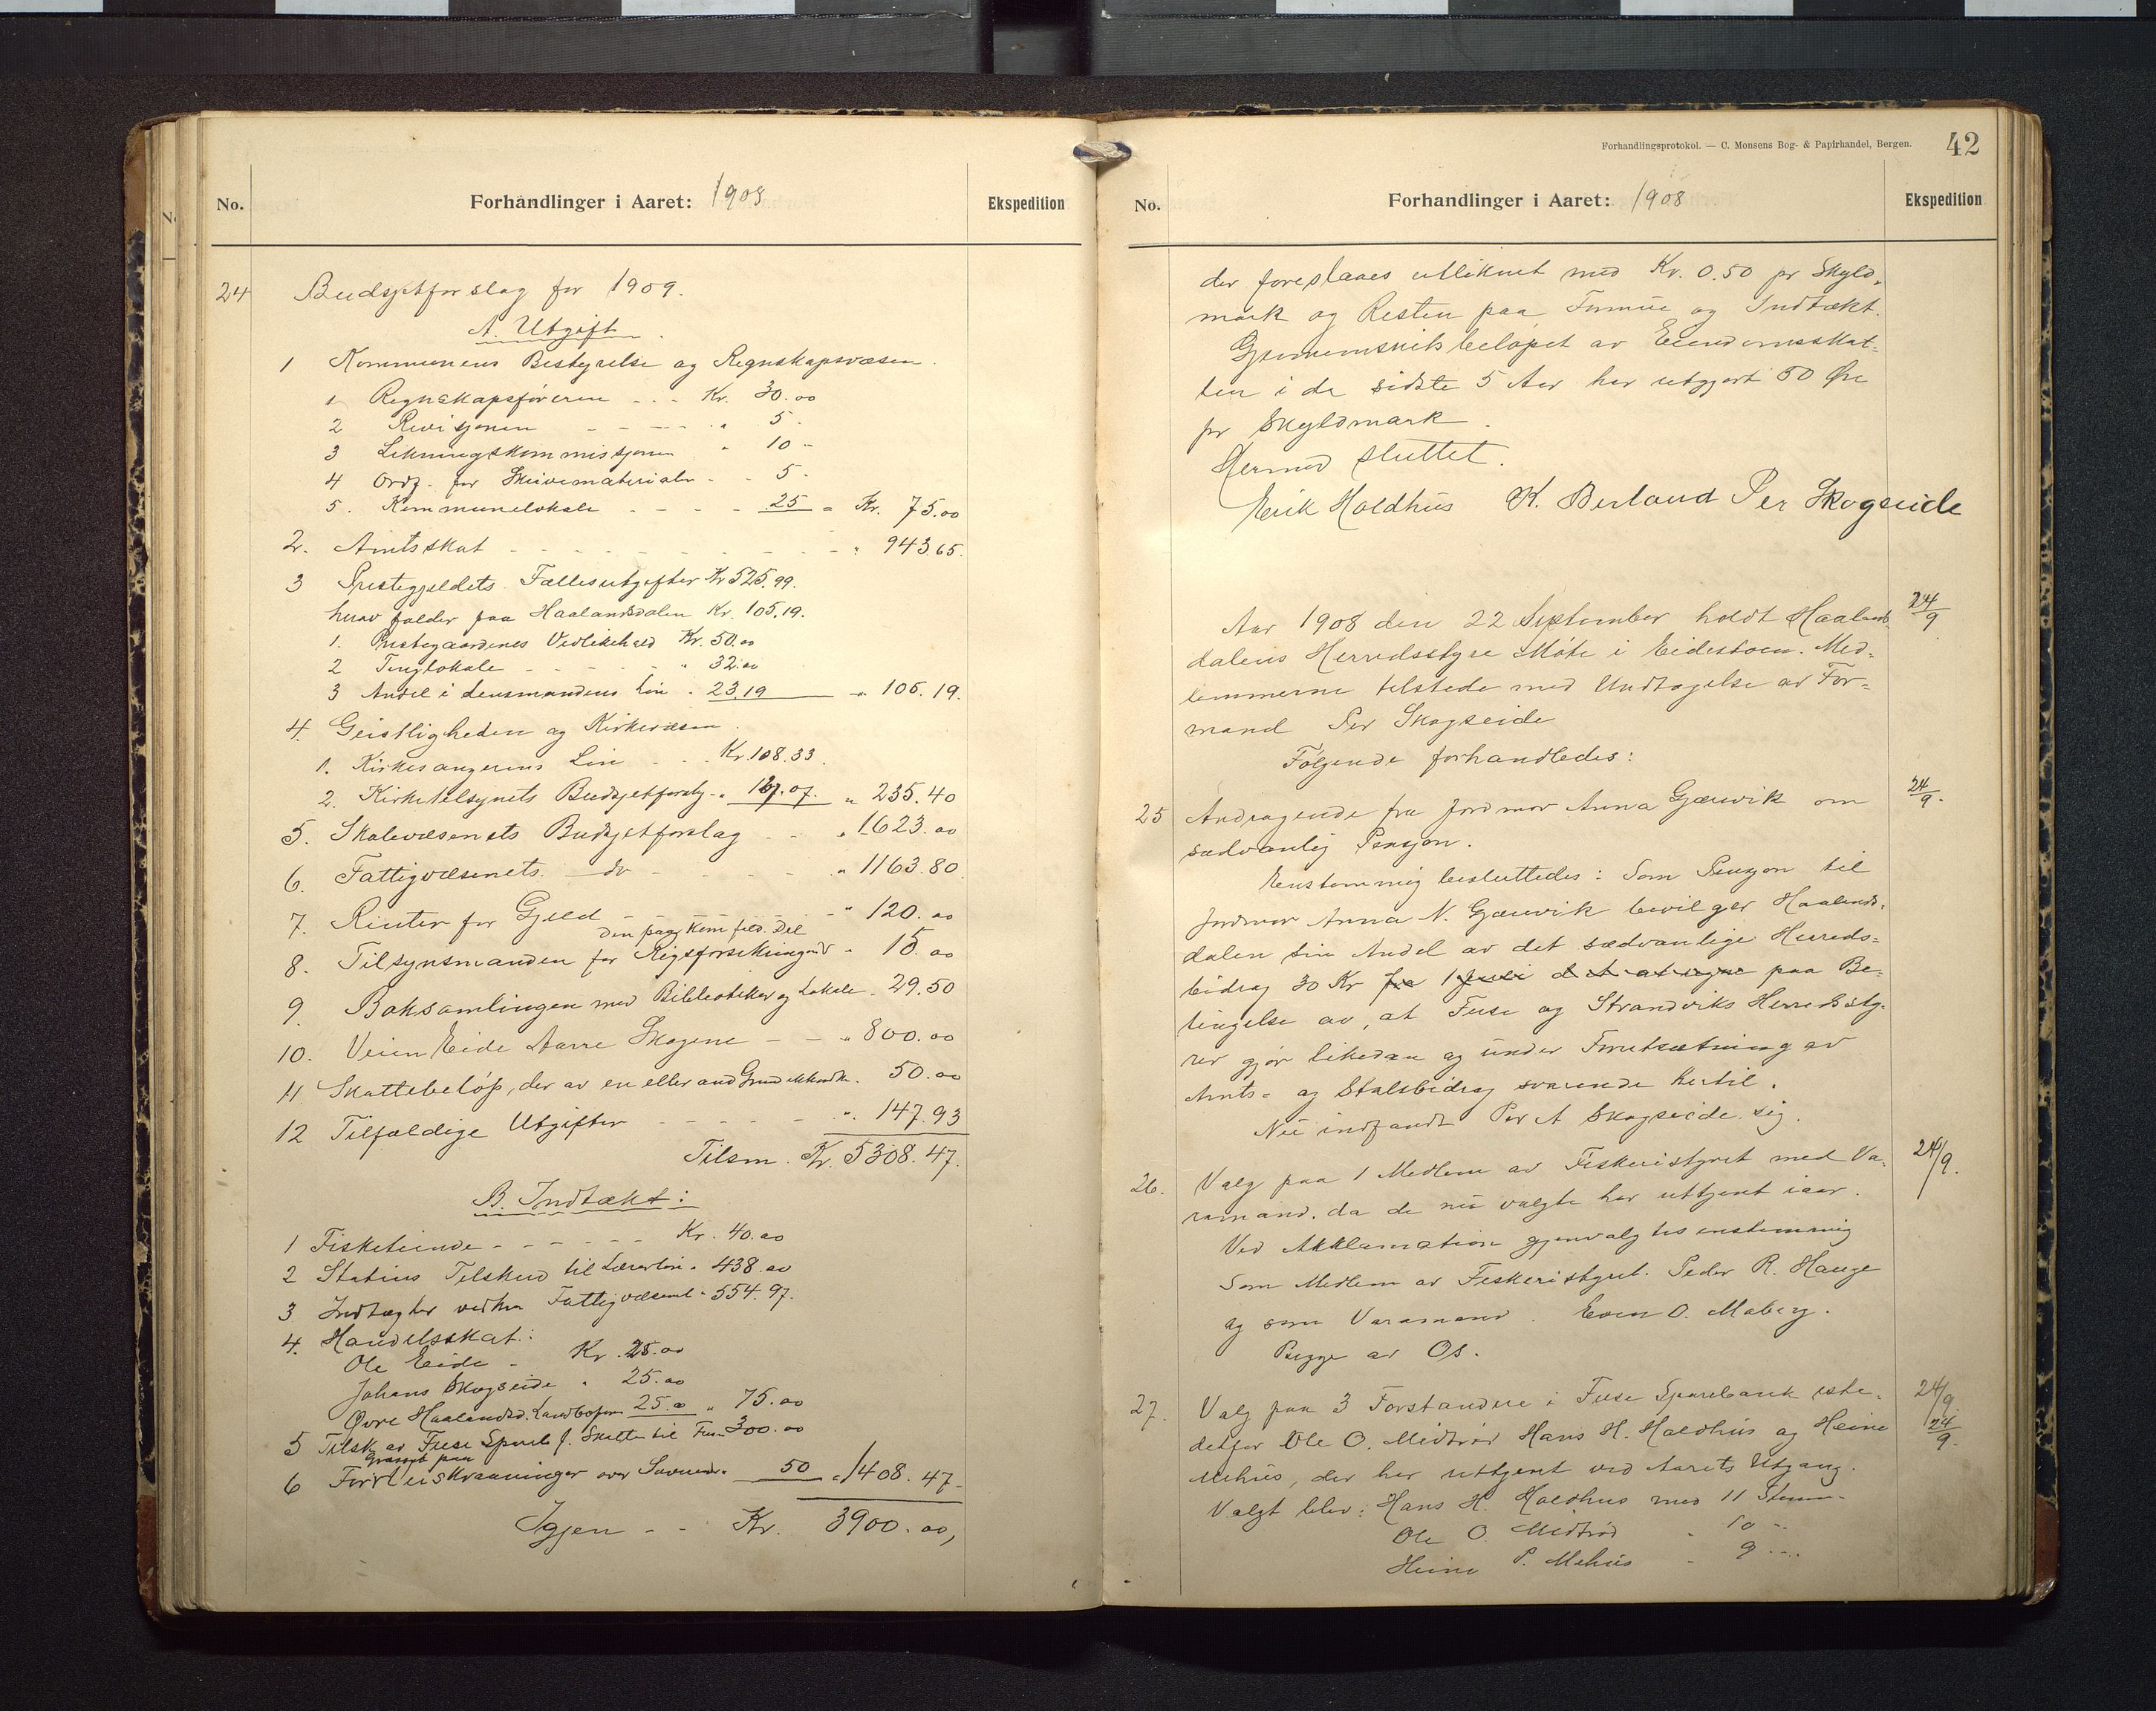 No.
Forhandlinger i Aaret: 1908
Ekspedition
24 Budsjetforslag for 1909.
A. Utgift.
1 Kommunens Bestyrelse og Regnskapsvæsen.
1 Regnskapsføreren - - - Kr. 30.00
2 Revisjonen - - - - " 5 -
3 Likningskommissjonen " 10 -
4 Ordf. for Skrivematerialer - - 5 -
5. Kommunelokale - - - - 25 " Kr. 75.00
2. Amtsskat - - - - - - - - - - " 943.65.
3 Prestegjeldets Fællesutgifter Kr 525.99.
hvav falder paa Haalandsdalen Kr. 105.19.
1. Prestegaardenes Vedlikehald Kr. 50.00
2 Tinglokale - - - - - " 32.00
3 Andel i Lensmandens Løn . 23.19 " 105.19.
4. Geistligheden og Kirkevæsen.
1. Kirkesangerens Løn - - - Kr. 108.33.
2. Kirketilsynets Budsjetforslag - " 127.07. " 235.40
5. Skolevæsenets Budsjetforslag - - " 1623.00
6. Fattigvæsenets do - - - - - " 1163.80.
7. Rinter for Gjeld - - - - - " 120.00
den paa Kom. fald. Del
8. Tilsynsmanden for Rigsforsikring " 15.00
9. Boksamlingen med Bibliotekar og Lokale - 29.50
10. Veien Eide Aarre Skogene - - " 800.00
11 Skattebeløp, der av en eller and Grund - 50.00
12 Tilfældige Utgifter - - - - - " 147.93
Tilsm. Kr. 5308.47.
B. Indtækt:
1 Fisketiende - - - - - - Kr. 40.00
2 Statens Tilskud til Lærerløn " 438.00
3 Indtægter vedkm Fattigvæsenet " 554.97.
4. Handelsskat:
Ole Eide - Kr. 25.00
Johans Skogseide " 25.00
Øvre Haalandsd. Landbofor 25.00 " 75.00
5 Tilsk. av Fuse Spareb. f. Skatten til 300.00
paa
6 50 " 1408.47-
Igjen - - Kr. 3900.00,
Forhandlingsprotokol. — C. Monsens Bog- & Papirhandel, Bergen.
42
No.
Forhandlinger i Aaret: 1908
Ekspedition
der foreslaaes utliknet med Kr. 0.50 pr Skyld-
mark og Resten paa Formue og Indtækt.
Gjennemsnitsbeløpet av Eiendomsskat-
ten i de sidste 5 Aar har utgjort 50 Øre
pr Skyldmark.
Hermed sluttet.
Erik Holdhus K. Berland Per Skogseide
Aar 1908 den 22 September holdt Haalands- 24/9
dalens Herredsstyre Møte i Eidestoen. Med-
lemmerne tilstede med Undtagelse av For-
mand Per Skogseide
Følgende forhandledes:
25 Andragende fra Jordmor Anna Gjærvik om 24/9.
sædvanlig Pensjon.
Enstemmig besluttedes: Som Pensjon til
Jordmor Anna N. Gjærvik bevilger Haalands-
dalen sin Andel av det sædvanlige Herreds-
bidrag 30 Kr fra 1 Juli paa Be-
tingelse av, at Fuse og Strandviks Herredssty-
rer gjør likedan og under Forutsætning av
Amts- og Statsbidrag svarende hertil.
Nu indfandt Per A Skogseide sig.
26. Valg paa 1 Medlem av Fiskeristyret med Va- 24/9.
ramand. da de nu valgte har uttjent iaar.
Ved Akklamation gjenvalgtes enstemmig
som Medlem av Fiskeristyret. Peder R. Hauge
og som Varamand. Even O. Moberg.
Begge av Os.
27. Valg paa 3 Forstandere i Fuse Sparebank iste- 24/9.
detfor Ole O. Midtrød Hans H. Holdhus og Heine 24/9.
Mehus, der har uttjent ved Aarets Utgang.
Valgt blev: Hans H. Holdhus med 11 Stem-
Ole O. Midtrød - 10 -
Heine P. Mehus - 9 -